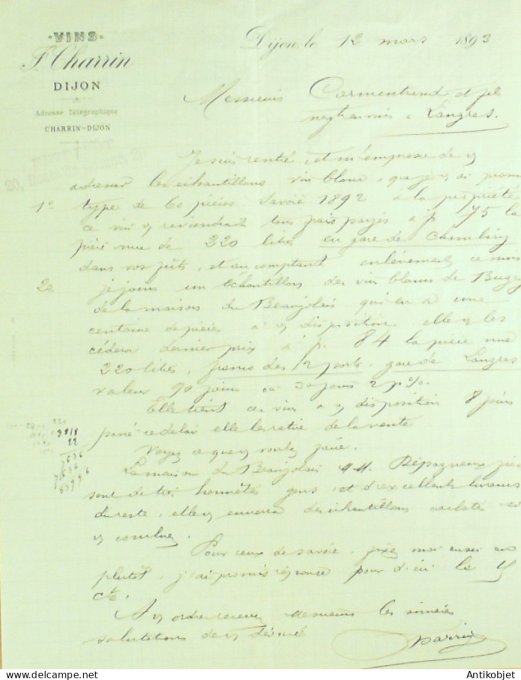 VINS
F. Charrin
DIJON
Adresse Télégraphique
CHARRIN-DIJON
Dijon, le 12 mars 1893
Messieurs Carmentrand et fils
à Langres.
Je suis rentré, et m'empresse de v/
adresser les échantillons vin blanc, que je v/ ai promis
1° type de 60 pièces Savoie 1892 à la propriété
ce vin v/ reviendrait tous frais payés à f. 175 la
pièce nue de 220 litres en gare de Chambéry
dans vos fûts, et au comptant enlèvement ce mois
2° je joins un échantillon des vin blancs du Bugey
de la maison du Beaujolais qui en a une
centaine de pièces à v/ disposition elle v/ les
cédera dernier prix à f. 84 la pièce nue
220 litres, franco des 2 ports, gare de Langres
valeur 90 jours ou 30 jours 2 p%.
Elle tient ce vin à v/ disposition 8 jours
passé ce délai elle le retire de la vente
Voyez ce que v/ voulez faire.
La maison du Beaujolais
sont de très honnêtes gens et d'excellents
du reste, elle v/ enverra des échantillons
Pour ceux de Savoie,
plutôt, j'ai promis réponse pour d'ici le 15
ct.
A v/ ordres recevez Messieurs les sincères
salutations de v/ dévoué
Charrin